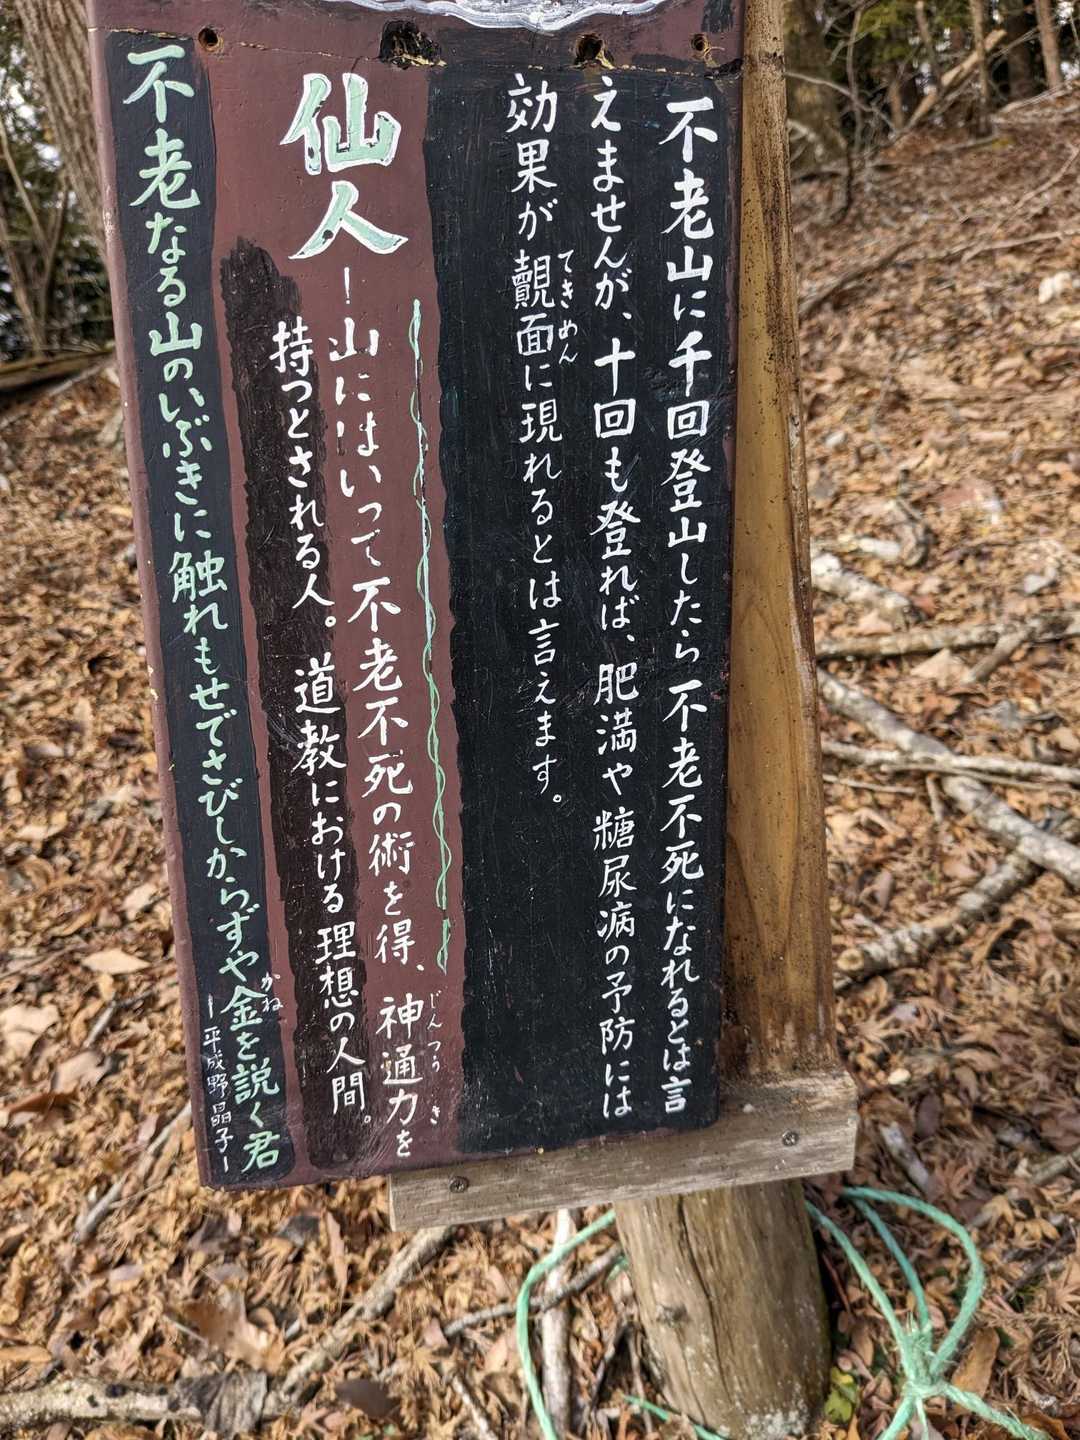 不老山に千回登山したら不老不死になれるとは言
えませんが、十回も登れば、肥満や糖尿病の予防には
効果が覿面に現れるとは言えます。
てきめん
仙人
ー山にはいって不老不死の術を得、神通力を
じんつうき
持つとされる人。道教における理想の人間。
不老なる山のいぶきに触れもせでさびしからずや金を説く君
かね
ー平成野晶子ー